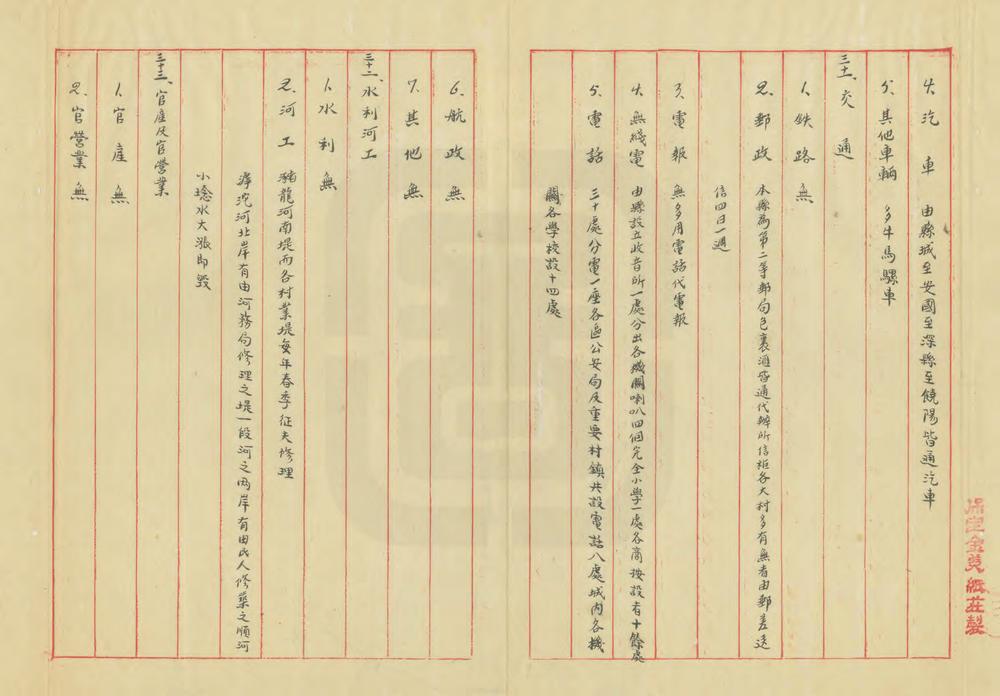 4、汽車 由縣城至安國至深縣至饒陽皆通汽車
5、其他車輛 多牛馬騾車
三十一、交通
1、鉄路 無
2、郵政 本縣為第二等郵局包裹滙皆通代辦所信柜各大村多有無者由郵差送
信四日一週
3、電報 無多用電話代電報
4、無綫電 由縣設立收音所一處分出各機關喇叭四個完全小學一處各商按設有十餘處
5、電話 三十處分電一座各區公安局及重要村鎮共設電話八處城內各機
關各學校設十四處
6、航政 無
7、其他 無
三十二、水利河工
1、水利 無
2、河工 豬龍河南堤而各村業堤每年春季征夫修理
滹沱河北岸有由河務局修理之堤一段河之兩岸有由民人修築之順河
小埝水大漲即毀
三十三、官產及官營業
1、官產 無
2、官營業 無
保定金茂紙莊製